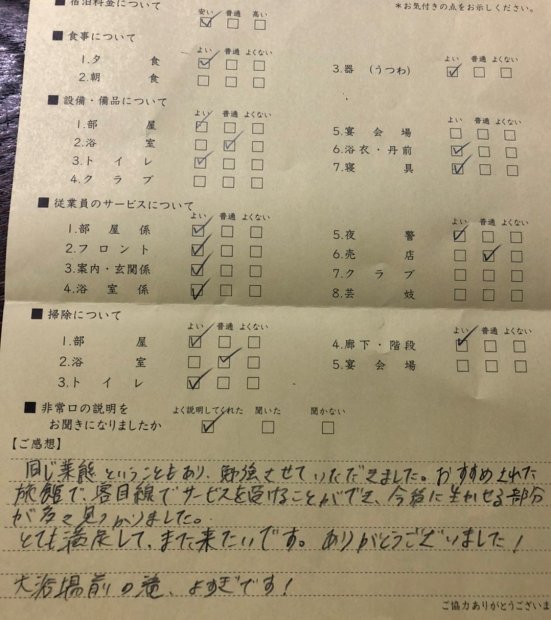 ■ 宿泊料金について
安い 普通 高い
＊お気付きの点をお示しください。
■ 食事について
よい 普通 よくない
1.夕食
2.朝食
よい 普通 よくない
3.器（うつわ）
■ 設備・備品について
よい 普通 よくない
1.部屋
2.浴室
3.トイレ
4.クラブ
よい 普通 よくない
5.宴会場
6.浴衣・丹前
7.寝具
■ 従業員のサービスについて
よい 普通 よくない
1.部屋係
2.フロント
3.案内・玄関係
4.浴室係
よい 普通 よくない
5.夜警
6.売店
7.クラブ
8.芸妓
■ 掃除について
よい 普通 よくない
1.部屋
2.浴室
3.トイレ
よい 普通 よくない
4.廊下・階段
5.宴会場
■ 非常口の説明を
お聞きになりましたか
よく説明してくれた 聞いた 聞かない
【ご感想】
同じ業態ということもあり、勉強させていただきました。おすすめされた
旅館で、客目線でサービスを受けることができ、今後に生かせる部分
が多く見つかりました。
とても満足して、また来たいです。ありがとうございました！
大浴場前の滝、よすぎです！
ご協力ありがとうございま